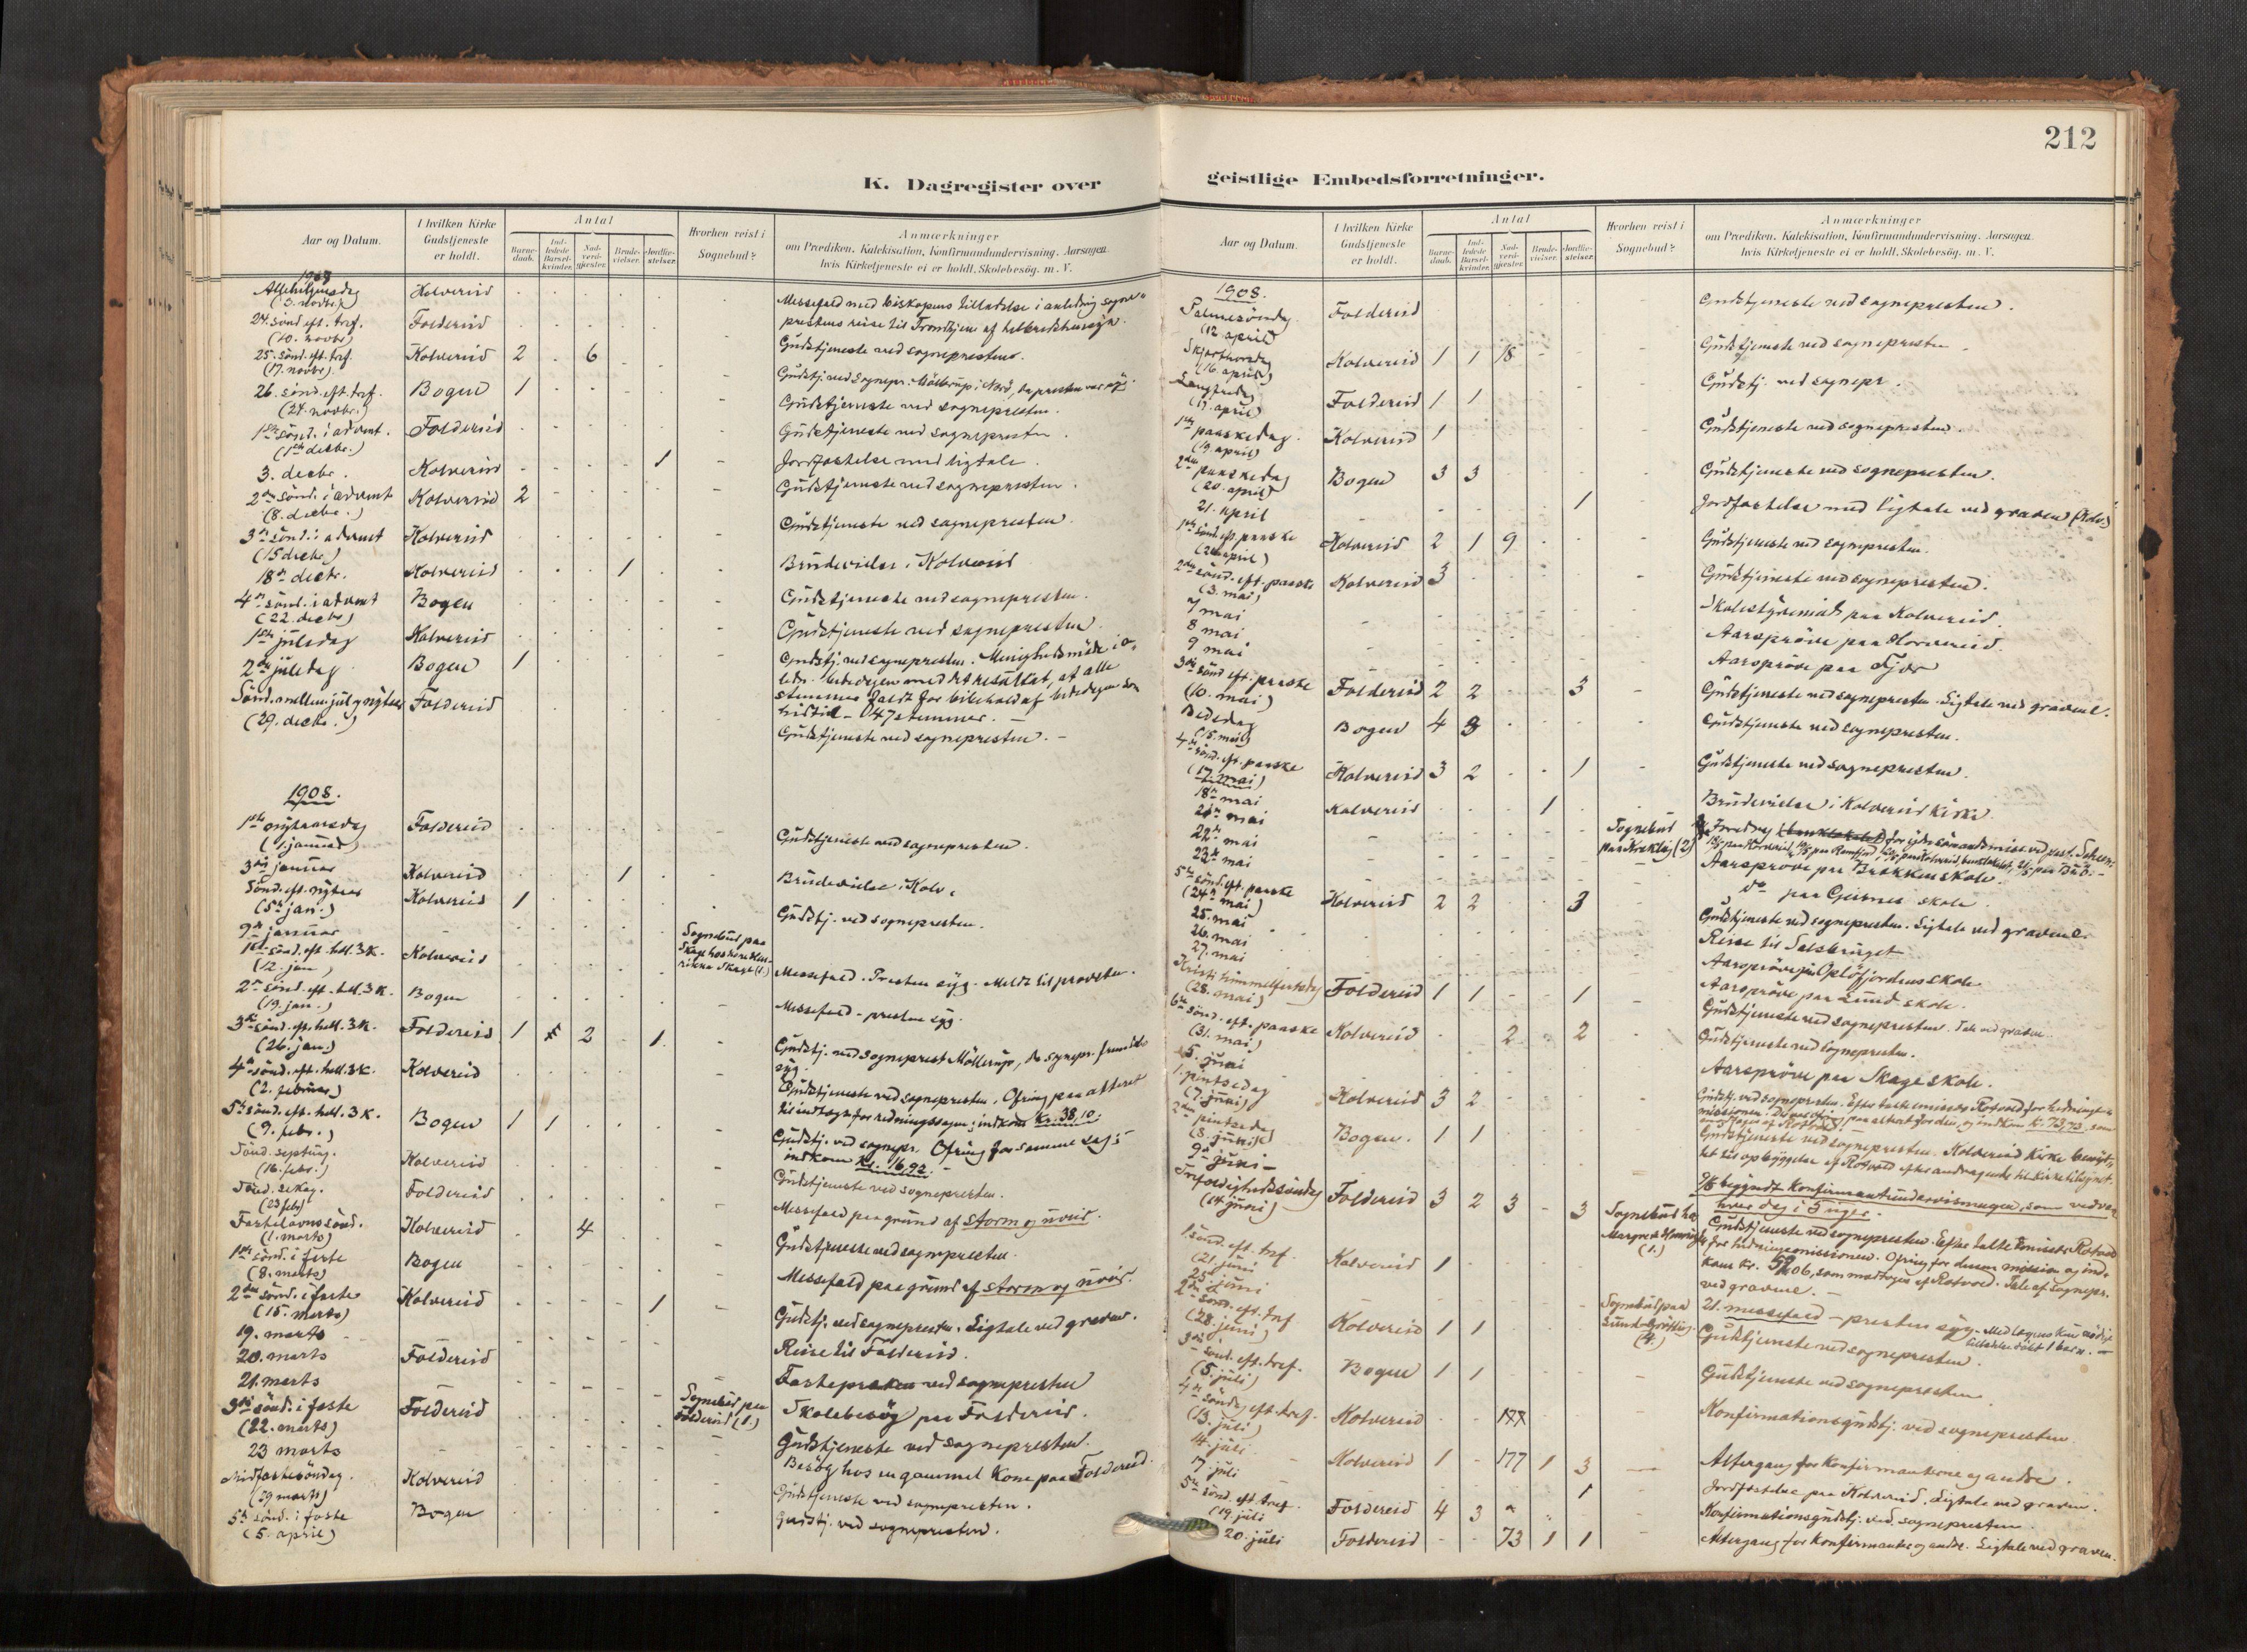 212
K. Dagregister over
Aar og Datum.
I hvilken Kirke
Gudstjeneste
er holdt.
Antal
Barne-
daab.
Ind-
ledede
Barsel-
kvinder.
Nad-
verd-
gjæster.
Brude-
vielser.
Jordfæ-
stelser.
Hvorhen reist i
Sognebud?
Anmærkninger
om Prædiken, Katekisation, Konfirmandundervisning, Aarsagen,
hvis Kirketjeneste ei er holdt, Skolebesög, m. V.
Allehelgensdag Kolvereid
(3. novbr.) Messefald med biskopens tilladelse i anledning sogne-
24. sönd. eft. tref. Foldereid prestens reise til Trondhjem af helbredshensyn.
(10. novbr.) Gudstjeneste ved sognepresten.
25. sönd. eft. tref. Kolvereid 2 . 6
(17. novbr.)
26. sönd. eft. tref. Bogen 1 Gudstjeneste ved sognepresten.
(24. novbr.)
1ste sönd. i advent. Foldereid Gudstjeneste ved sognepresten.
(1ste decbr.)
3. decbr. Kolvereid 1 Jordfæstelse med ligtale.
2den sönd. i advent Kolvereid 2 Gudstjeneste ved sognepresten.
(8. decbr.)
3die sönd. i advent Kolvereid Gudstjeneste ved sognepresten.
(15 decbr.)
18de decbr. Kolvereid 1 Brudevielse i Kolvereid
4de sönd. i advent Bogen Gudstjeneste ved sognepresten.
(22. decbr.)
1ste juledag Kolvereid Gudstjeneste ved sognepresten.
2den juledag Bogen 1 Gudstj. ved sognepresten. Menighedsmöde i
Sönd. mellem jul og nytaar Foldereid
(29. decbr.) 47 stemmer. —
Gudstjeneste ved sognepresten. —
1908.
1ste nytaarsdag Foldereid Gudstjeneste ved sognepresten.
(1. januar)
3die januar Kolvereid 1 Brudevielse i Kolv.
Sönd. eft. nytaar Kolvereid 1 Gudstj. ved sognepresten.
(5te jan.)
9de januar Sognebud paa
1ste sönd. eft. hell. 3 K. Kolvereid Messefald. Presten syg. Meldt til provsten.
(12. jan)
2den sönd. eft. hell. 3 K. Bogen Messefald - presten syg.
(19. jan.)
3die sönd. eft. hell. 3 K. Foldereid 1 2 1 Gudstj. ved sogneprest Möllerup, da sognepr. fremdeles
(26. jan.) syg.
4de sönd. eft. hell. 3 K. Kolvereid Gudstjeneste ved sognepresten. Ofring paa alteret
(2. februar) til indtægt for redningssagen; indkom Kr. 38,10.
5te sönd. eft. hell. 3 K. Bogen 1 1 Gudstj. ved sognepr. Ofring for samme sag;
(9. febr.) indkom Kr. 16,92. —
Sönd. septuag. Kolvereid Gudstjeneste ved sognepresten.
(16. febr.)
Sönd. sexag. Foldereid Messefald paa grund af storm og uveir.
(23 feb)
Fastelavnssönd. Kolvereid 4 Gudstjeneste ved sognepresten.
(1. marts)
1ste sönd. i faste Bogen Messefald paa grund af storm og uveir.
(8. marts)
2den sönd. i faste Kolvereid 1 Gudstj. ved sognepresten. Ligtale ved graven.
(15. marts)
19. marts Reise til Foldereid.
20. marts Foldereid Fastepræken ved sognepresten
21. marts Skolebesög paa Foldereid.
3die sönd. i faste Foldereid Sognebud paa Foldereid (1.) Gudstjeneste ved sognepresten.
(22. marts)
23 marts Besög hos en gammel Kone paa Foldereid.
Midfastesöndag. Kolvereid Gudstjeneste ved sognepresten.
(29 marts)
5te sönd. i faste Bogen Gudstj. ved sognepresten.
(5. april)
geistlige Embedsforretninger.
Aar og Datum.
I hvilken Kirke
Gudstjeneste
er holdt.
Antal
Barne-
daab.
Ind-
ledede
Barsel-
kvinder.
Nad-
verd-
gjæster.
Brude-
vielser.
Jordfæ-
stelser.
Hvorhen reist i
Sognebud?
Anmærkninger
om Prædiken, Katekisation, Konfirmandundervisning, Aarsagen,
hvis Kirketjeneste ei er holdt, Skolebesög, m. V.
1908.
Palmesöndag Foldereid Gudstjeneste ved sognepresten.
(12. april)
Skjærtorsdag Kolvereid 1 1 18 Gudstjeneste ved sognepresten
(16. april)
Langfredag Foldereid 1 1 Gudstj. ved sognepr.
(17. april)
1ste paaskedag. Kolvereid 1 Gudstjeneste ved sognepresten.
(19. april)
2den paaskedag Bogen 3 3 Gudstjeneste ved sognepresten.
(20. april)
21. april 1 Jordfæstelse med ligtale ved graven (Kolv.)
1ste sönd. eft. paaske Kolvereid 2 1 9 Gudstjeneste ved sognepresten.
(26 april)
2den sönd. eft. paaske Kolvereid 3 Gudstjeneste ved sognepresten.
(3. mai)
7 mai Skolestyremöde paa Kolvereid.
8 mai Aarspröve paa Horvereid.
9 mai Aarspröve paa
3die sönd. eft. paaske Foldereid 2 2 3 Gudstjeneste ved sognepresten. Ligtale ved gravene.
(10. mai)
Bededag Bogen 4 3 Gudstjeneste ved sognepresten.
(15. mai)
4de sönd. eft. paaske Kolvereid 3 2 1 Gudstjeneste ved sognepresten.
(17. mai)
18de mai Kolvereid 1 Brudevielse i Kolvereid Kirke.
20de mai Sognebud
22de mai Aarspröve paa Brækken skole.
23de mai do paa Gjeisnes skole.
5te sönd. eft. paaske Kolvereid 2 2 3 Gudstjeneste ved sognepresten. Ligtale ved gravene.
(24de mai)
25. mai Reise til Salsbruget
26. mai Aarspröve paa Oplöfjordens skole
27. mai Aarspröve paa Lund skole.
Kristi himmelfartsdag Foldereid 1 1 1 Gudstjeneste ved sognepresten. Tale ved graven.
(28. mai)
6te sönd. eft. paaske Kolvereid 2 2 Gudstjeneste ved sognepresten.
(31. mai)
5. juni Aarspröve paa Skage skole.
1. pintsedag Kolvereid 3 2 Gudstj. ved sognepresten. Efter talte emissær Rotvold for hedninge-
(7. juni) missionen.
2den pintsedag Bogen. 1 1 Gudstjeneste ved sognepresten. Kolvereid Kirke benyt-
(8. juni)
9de juni — 9/6 begyndt Konfirmantundervisningen, som vedvarer
hver dag i 5 uger.
Trefoldighedssöndag Foldereid 3 2 3 - 3 Sognebud Gudstjeneste ved sognepresten. Efter talte Emissær Rotvold
(14. juni) for hedningemissionen. Ofring for denne mission og ind-
kom Kr. som modtoges af Rotvold. Tale af sognepr.
ved gravene. —
1. sönd. eft. tref. Kolvereid 1 21. messefald — presten syg.
(21. juni
25. juni Sognebud paa
2den sönd. eft. tref Kolvereid 1 1 Gudstjeneste ved sognepresten.
(28. juni)
3die sönd. eft. tref. Bogen 1 1 Gudstjeneste ved sognepresten
(5. juli)
4de sönd. eft. tref. Kolvereid Konfirmationsgudstj. ved sognepresten
(13. juli)
14. juli Kolvereid 1 - 177 1 3 Altergang for Konfirmanterne og andre.
17. juli 1 Jordfæstelse paa Kolvereid. Ligtale ved graven.
5te sönd. eft. tref. Foldereid 4 3 Konfirmationsgudstj. ved sognepresten.
(19. juli
20. juli Foldereid - - 73 1 1 Altergang for Konfirmanter og andre. Ligtale ved graven.